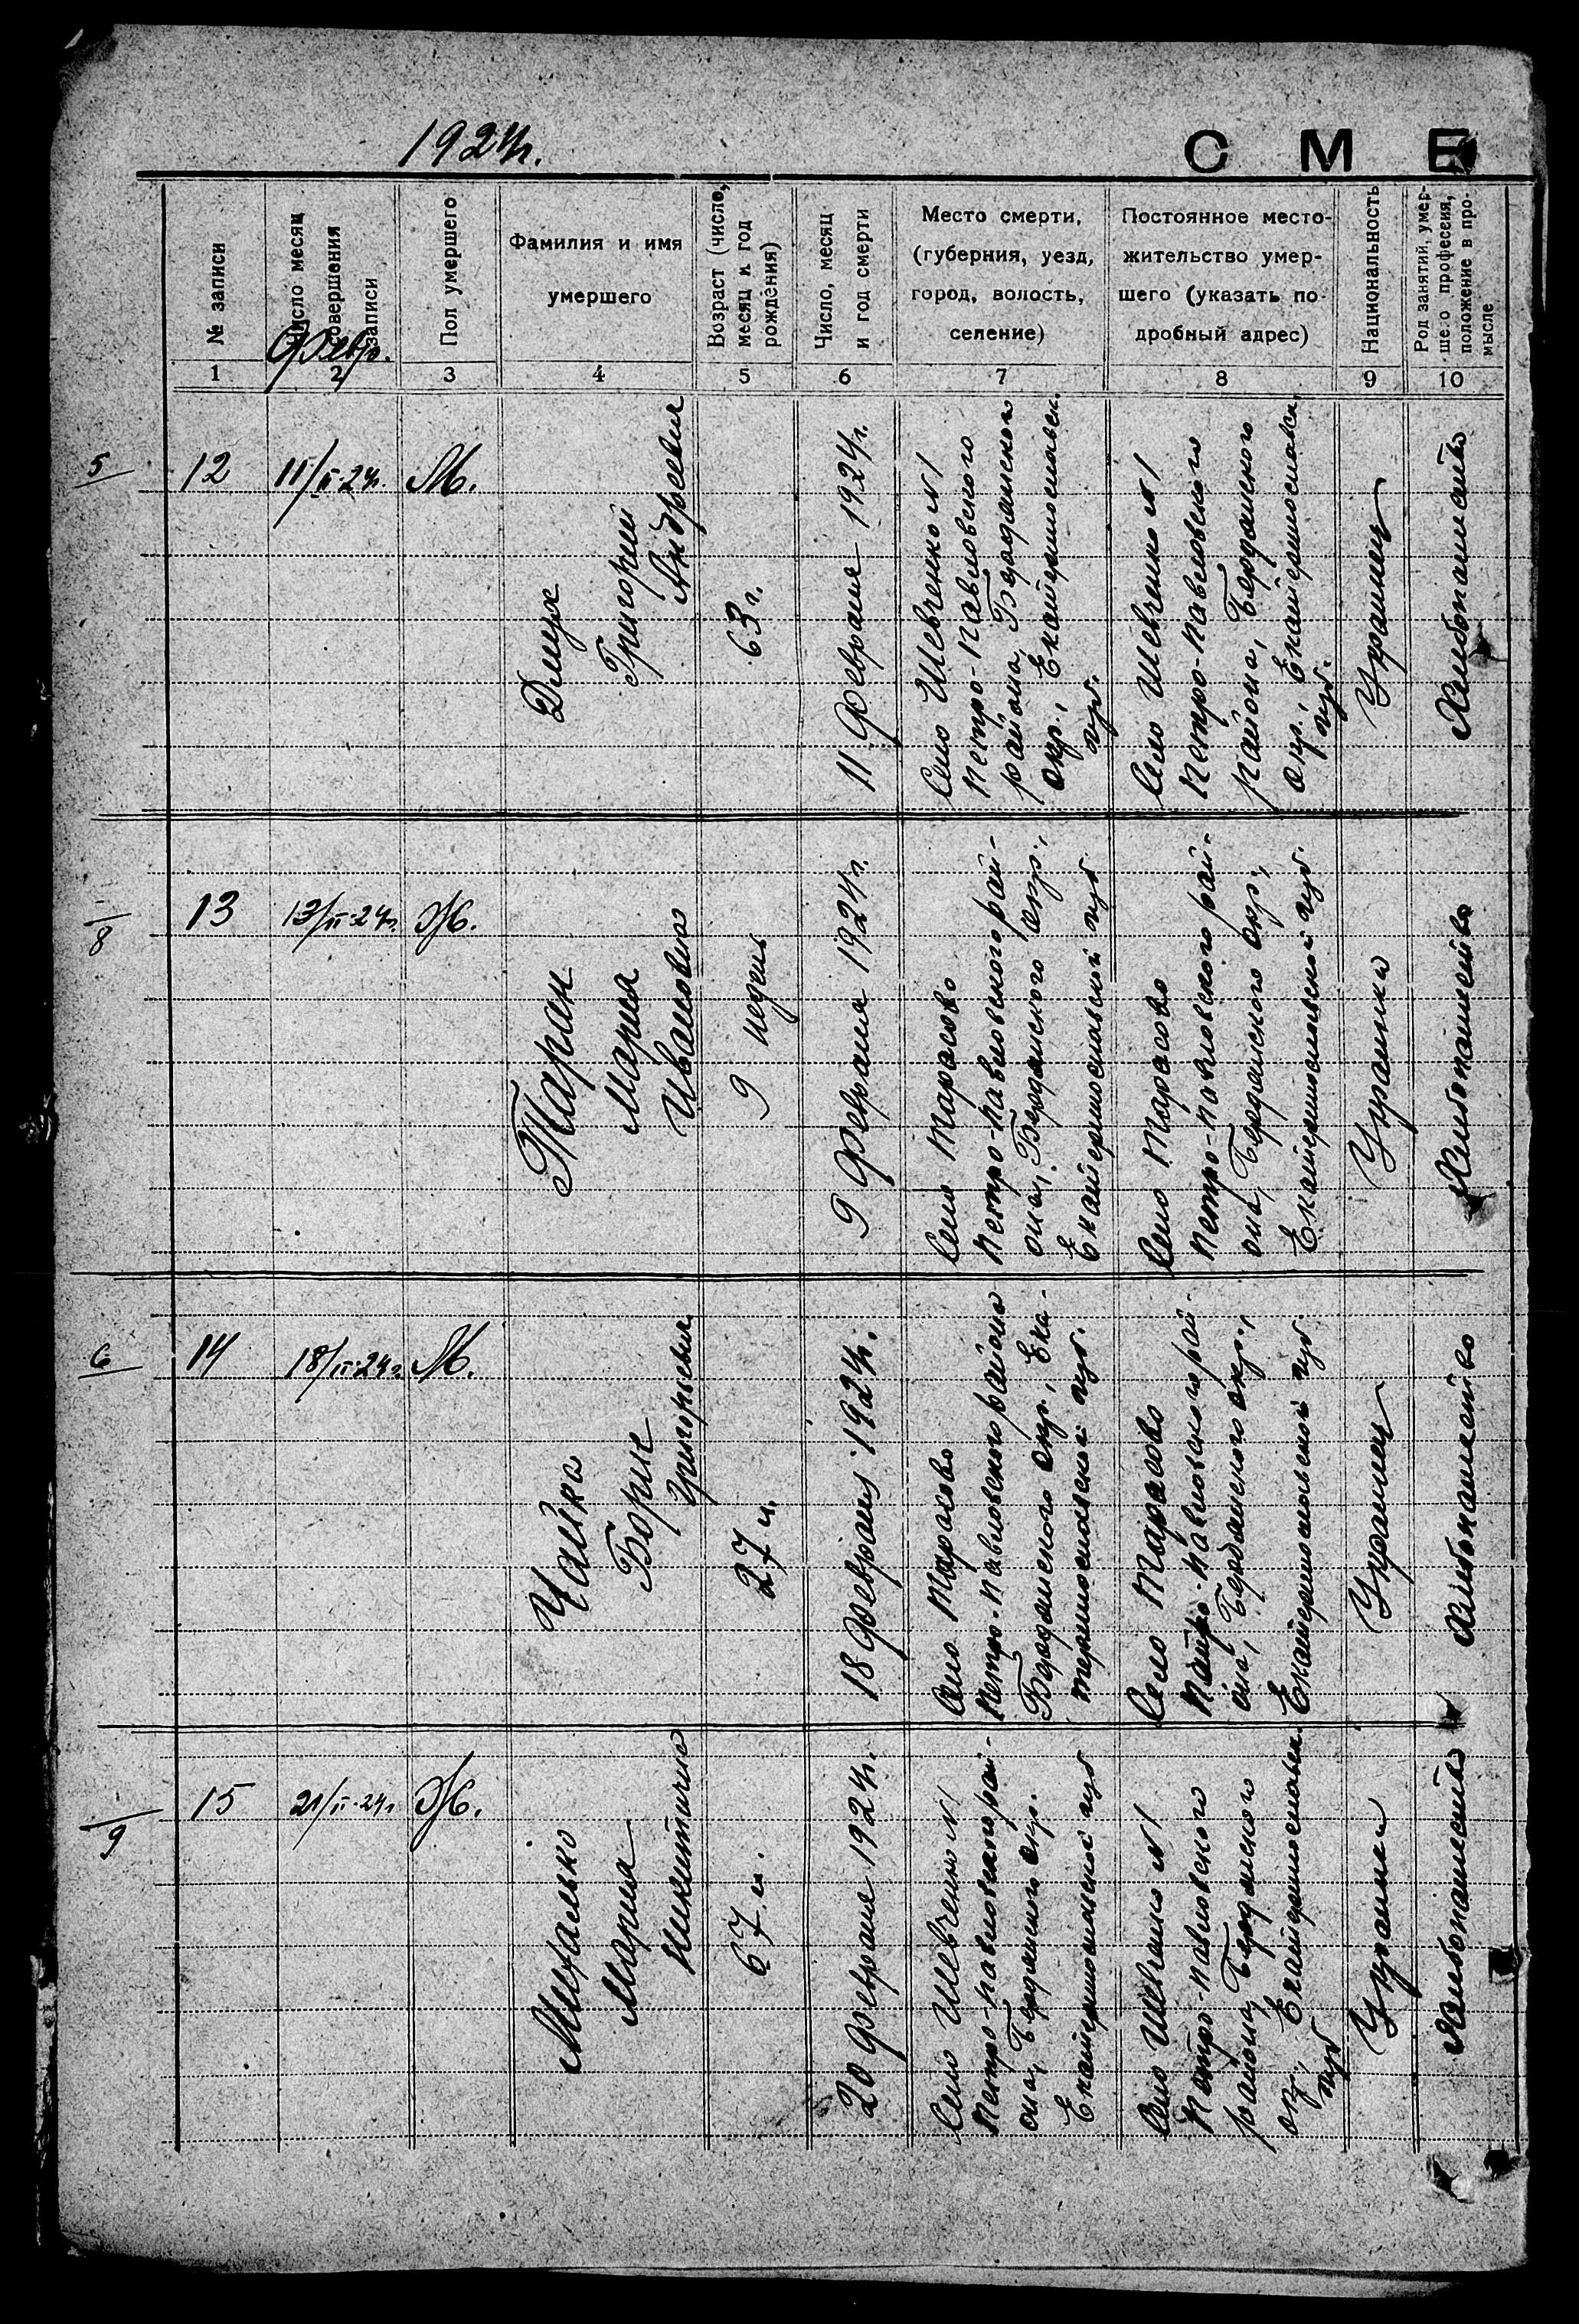 1924г.
С М Е
№ записи
Число месяц
совершения
записи
Февр.
Пол умершего
Фамилия и имя
умершего
Возраст (число,
месяц и год
рождения)
Число, месяц
и год смерти
Место смерти,
(губерния, уезд,
город, волость,
селение)
Постоянное место-
жительство умер-
шего (указать по-
дробный адрес)
Национальность
Род занятий умер-
шего профессия,
положение в про-
мысле
1 2 3 4 5 6 7 8 9 10
5
12
11/II-24г.
М.
Григорий
Андреевич
63 г.
11 Февраля 1924г.
Село Шевченко №1
Петро-Павловского
района, Бердянского
окр., Екатеринославск.
губ.
Село Шевченко №1
Петро-Павловского
района, Бердянского
окр., Екатеринославск.
губ.
Украинец
Хлебопашество
8
13
13/II-24г.
Ж.
Таран
Мария
Ивановна
9 недель
9 Февраля 1924г.
Село Тарасово
Петро-Павловского рай-
она, Бердянского окр.,
Екатеринославской губ.
Село Тарасово
Петро-Павловского рай-
она, Бердянского окр.,
Екатеринославской губ.
Украинка
Хлебопашество
6
14
18/II-24г.
М.
Чайка
Борис
Григорьевич
27 л.
18 Февраля 1924г.
Село Тарасово
Петро-Павловского района
Бердянского окр., Ека-
теринославской губ.
Село Тарасово
Петро-Павловского рай-
она, Бердянского окр.,
Екатеринославской губ.
Украинец
Хлебопашество
9
15
21/II-24г.
Ж.
Мария
Никитична
67 л.
20 Февраля 1924г.
Село Шевченко №1
Петро-Павловского рай-
она, Бердянского окр.
Екатеринославской губ
Село Шевченко №1
Петро-Павловского
района, Бердянского
окр., Екатеринославск.
губ
Украинка
Хлебопашество